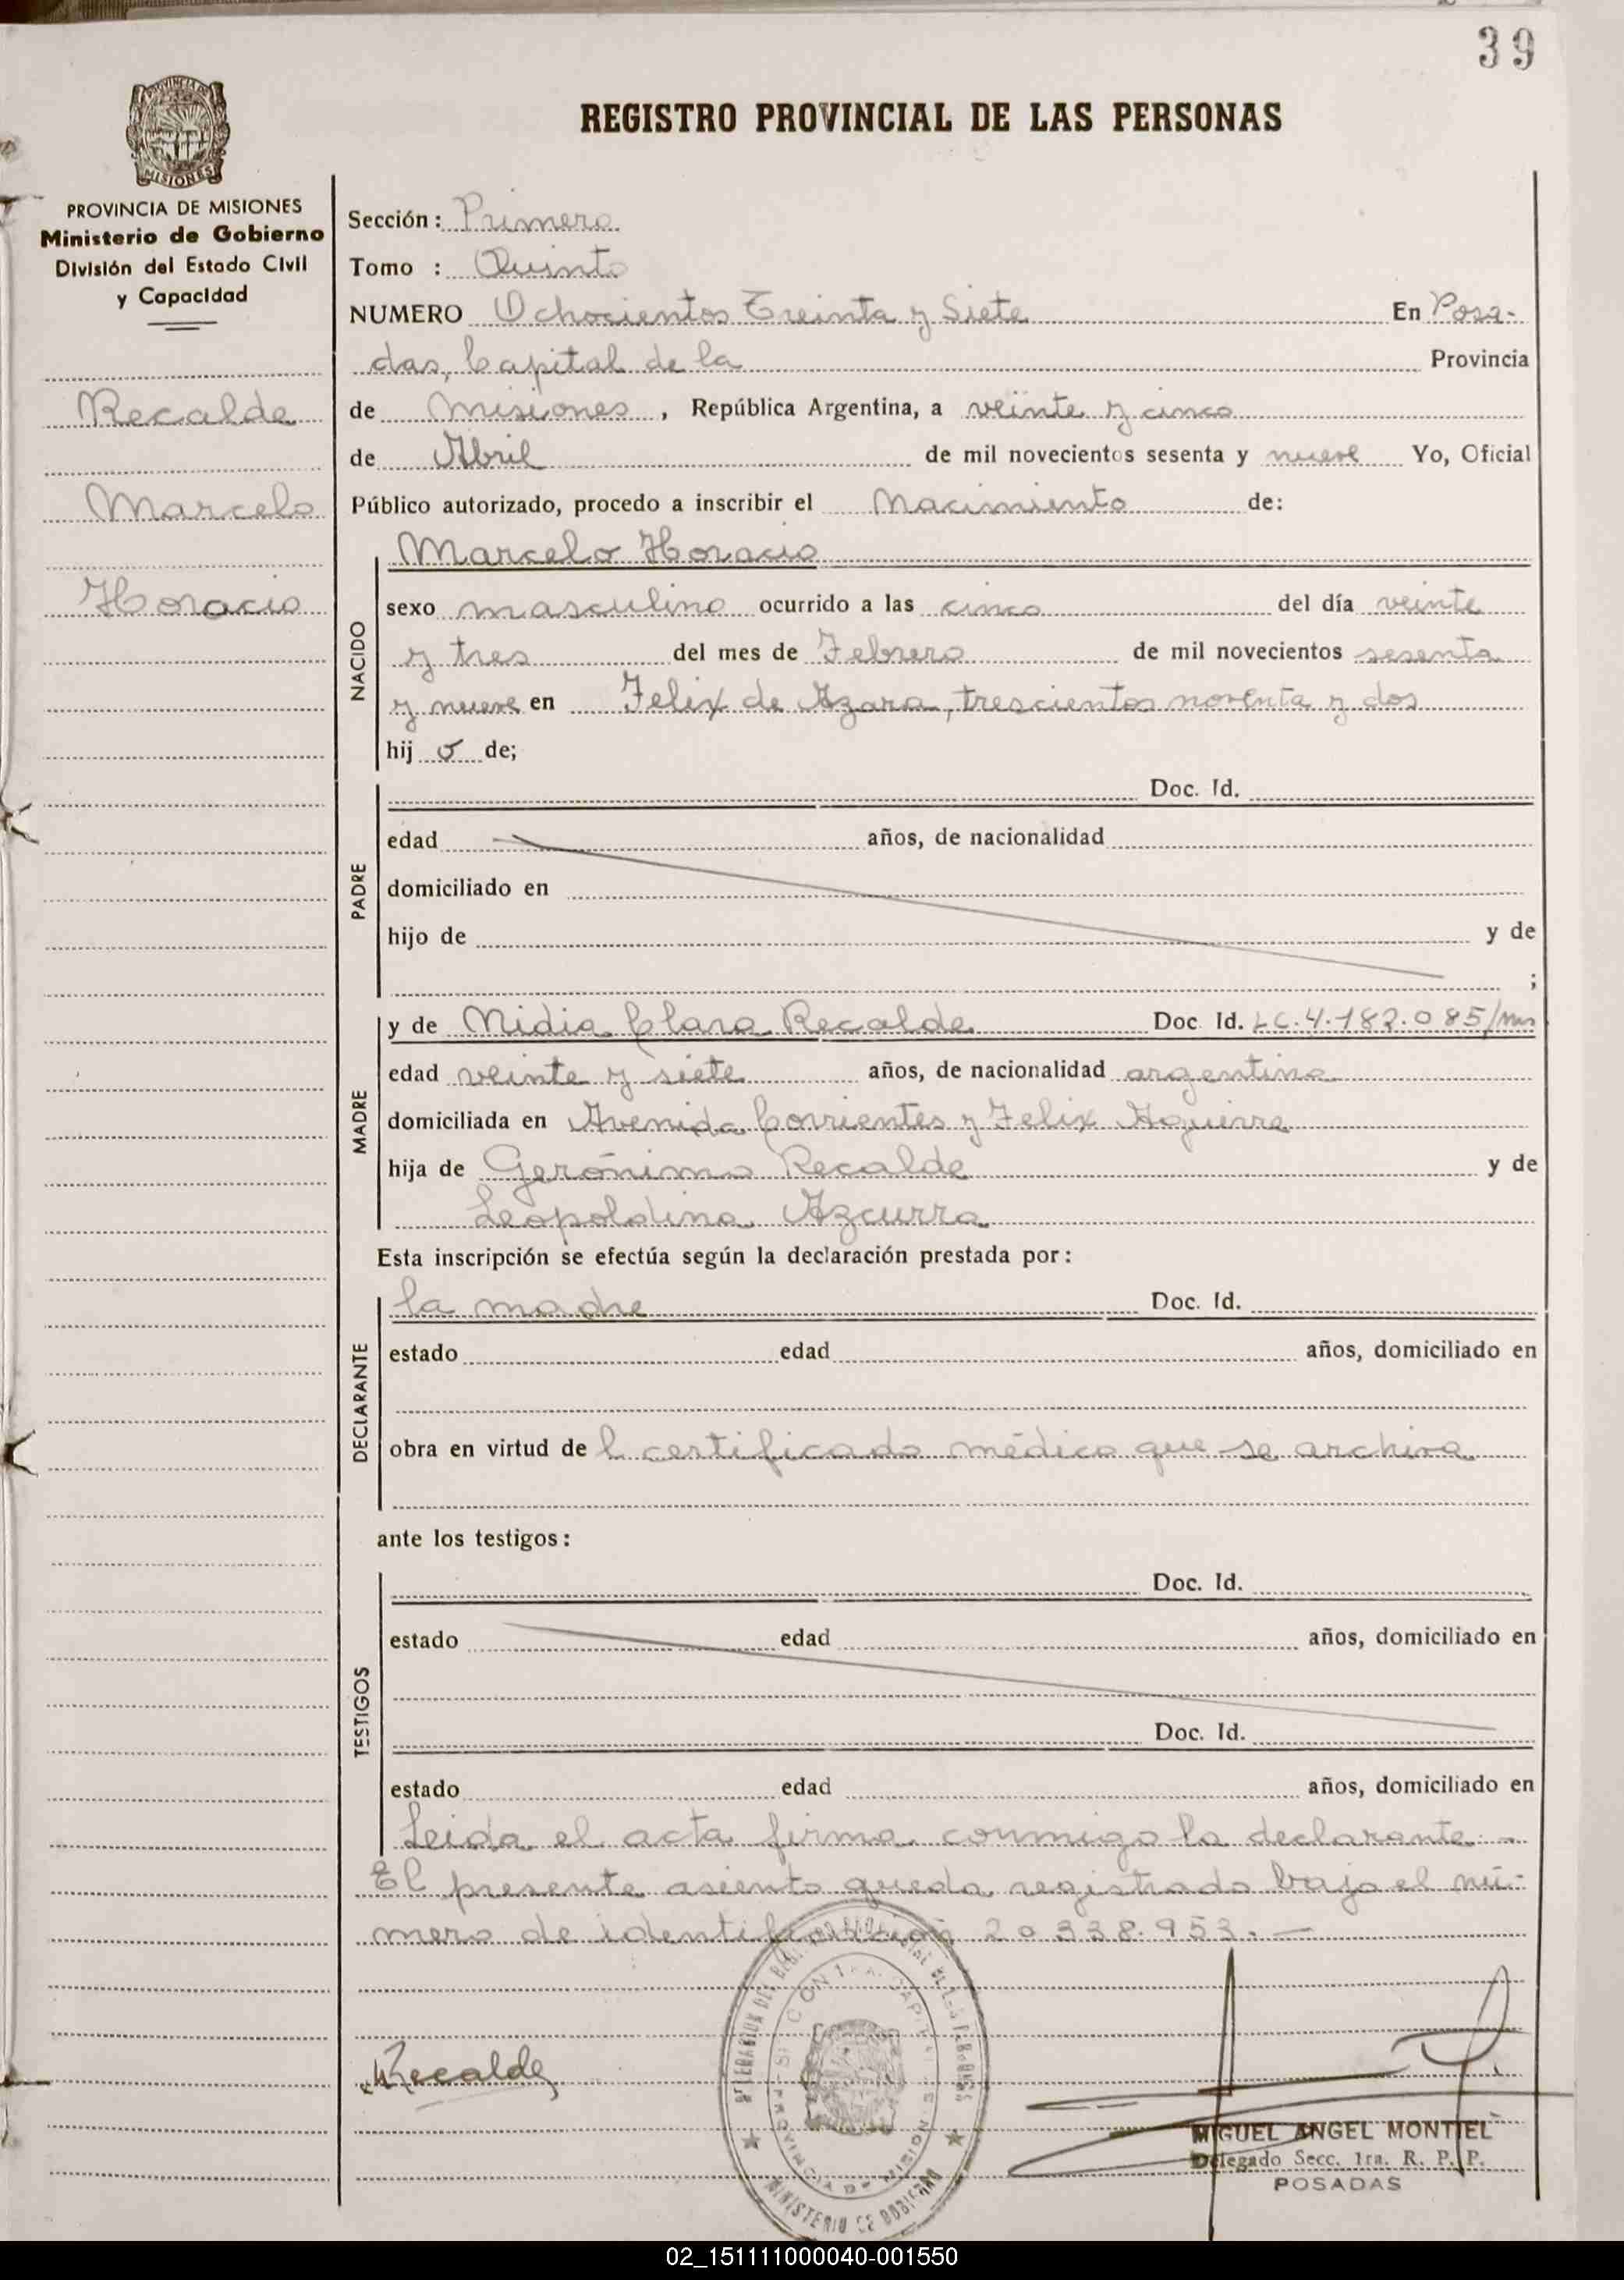 39
REGISTRO PROVINCIAL DE LAS PERSONAS
PROVINCIA DE MISIONES
Ministerio de Gobierno
División del Estado Civil
y Capacidad
Recalde
Marcelo
Horacio
Sección: Primera
Tomo : Quinto
NUMERO Ochocientos Treinta y Siete En Posa-
das, Capital de la Provincia
de Misiones, República Argentina, a veinte y cinco
de Abril de mil novecientos sesenta y nueve Yo, Oficial
Público autorizado, procedo a inscribir el Nacimiento de:
NACIDO
Marcelo Horacio
sexo masculino ocurrido a las cinco del día veinte
y tres del mes de Febrero de mil novecientos sesenta
y nueve en Felix de Azara, trescientos noventa y dos
hij o de;
PADRE
Doc. Id.
edad años, de nacionalidad
domiciliado en
hijo de y de
;
MADRE
y de Nidia Clara Recalde Doc. Id. LC.4.182.085/
edad veinte y siete años, de nacionalidad argentina
domiciliada en Avenida Corrientes y Felix Aguirre
hija de Gerónimo Recalde y de
Leopoldina Azcurra
Esta inscripción se efectúa según la declaración prestada por:
DECLARANTE
la madre Doc. Id.
estado edad años, domiciliado en
obra en virtud de l certificado médico que se archiva
ante los testigos:
TESTIGOS
Doc. Id.
estado edad años, domiciliado en
Doc. Id.
estado edad años, domiciliado en
Leida el acta firma conmigo la declarante.-
El presente asiento queda registrado bajo el nú-
mero de identificación 20.338.953.-
Recalde
MINISTERIO DE GOBIERNO
PROVINCIA DE MISIONES
MIGUEL ANGEL MONTIEL
Delegado Secc. 1ra. R. P. P.
POSADAS
02_151111000040-001550